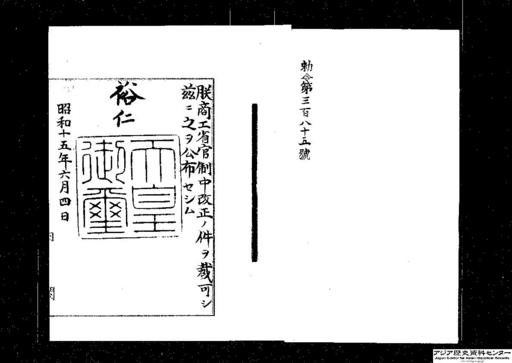 勅令第三百八十五號
朕商工省官制中改正ノ件ヲ裁可シ
茲ニ之ヲ公布セシム
裕仁
天皇御璽
昭和十五年六月四日
アジア歴史資料センター
Japan Center for Asian Historical Records